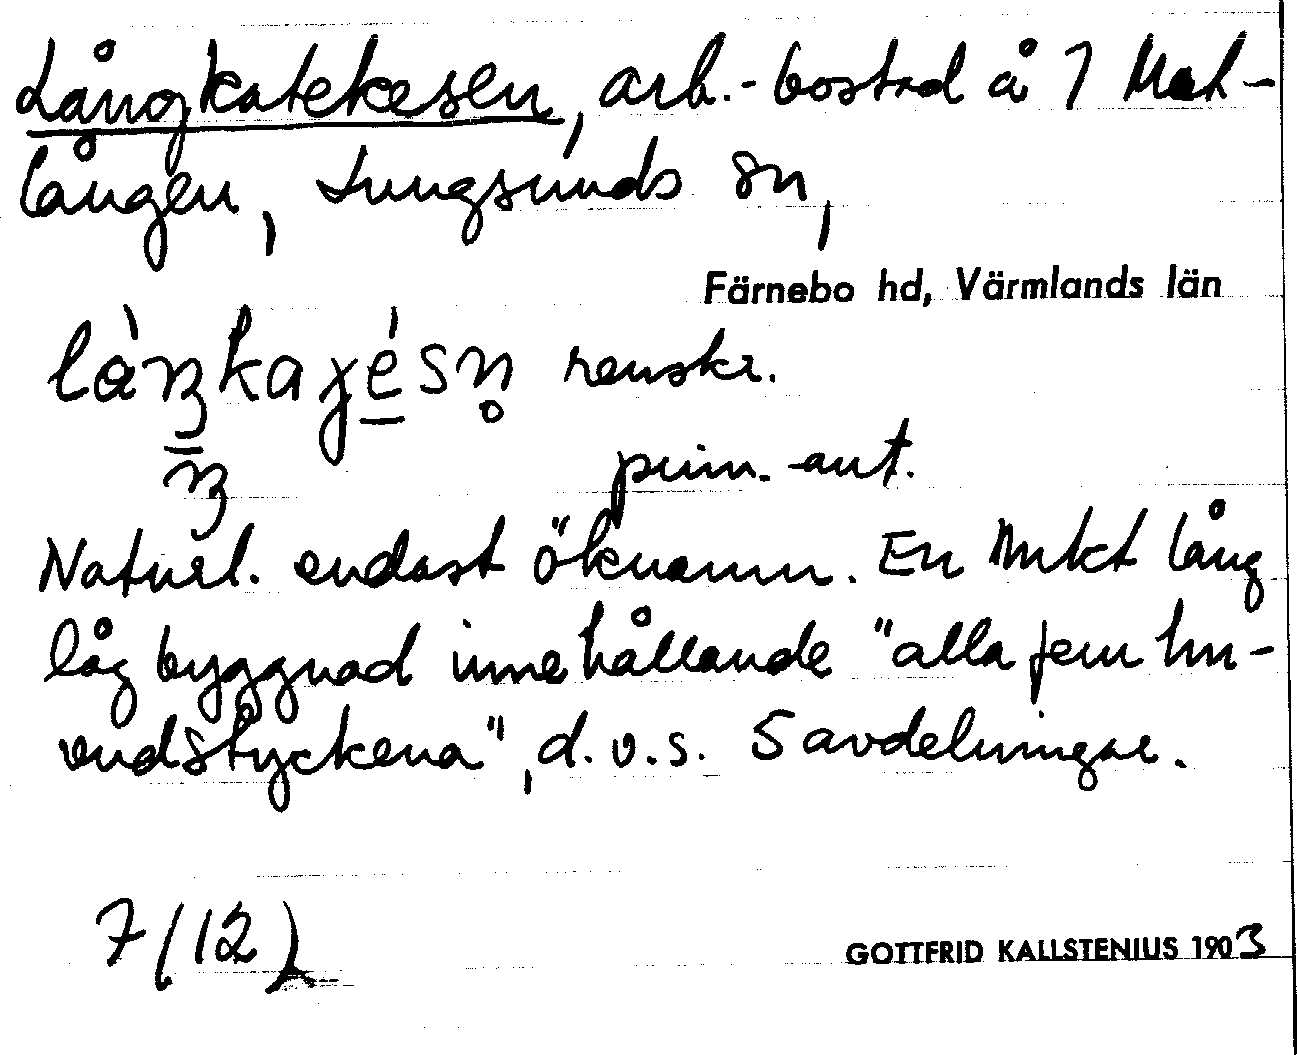 Långkatekesen, arb.-bostad å 7 Mat-
lången, Lungsunds sn,
Färnebo hd, Värmlands län
renskr.
prim. ant.
Naturl. endast öknamn. En mkt lång
låg byggnad innehållande "alla fem hu-
vudstyckena", d.v.s. 5 avdelningar.
7 (12)
GOTTFRID KALLSTENIUS 1903